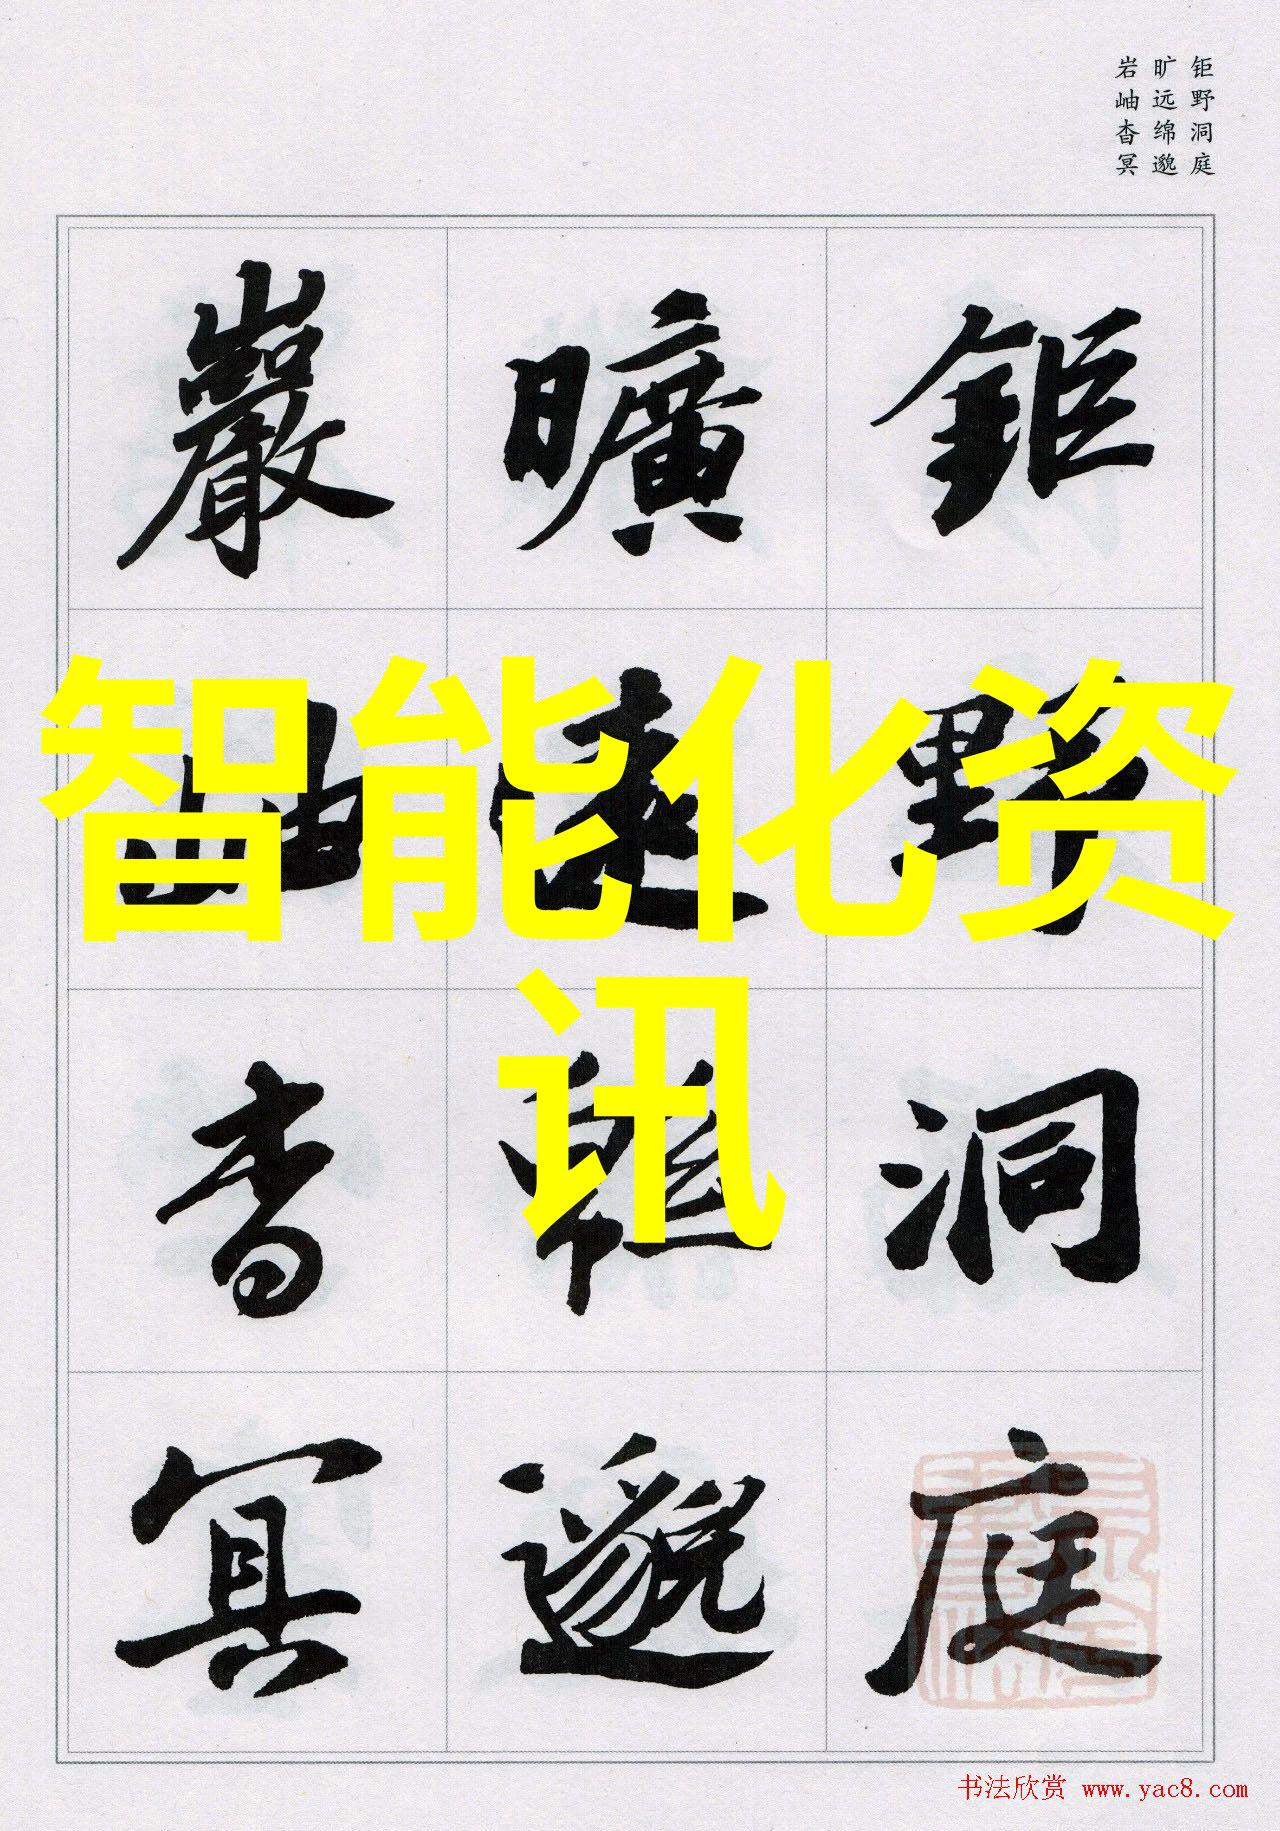 钜野洞庭
旷远绵邈
岩岫杳冥
鉅野洞庭
曠遠緜邈
巖岫杳冥
智能化资
讯
书法欣赏 www.yac8.com